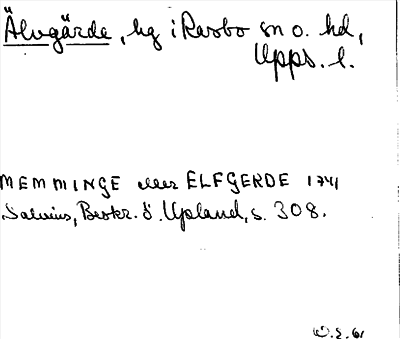 Älvgärde, hg i Rasbo sn o. hd,
Upps. l.
MEMMINGE eller ELFGERDE 1741
Salvius, Beskr. ö. Upland, s. 308.